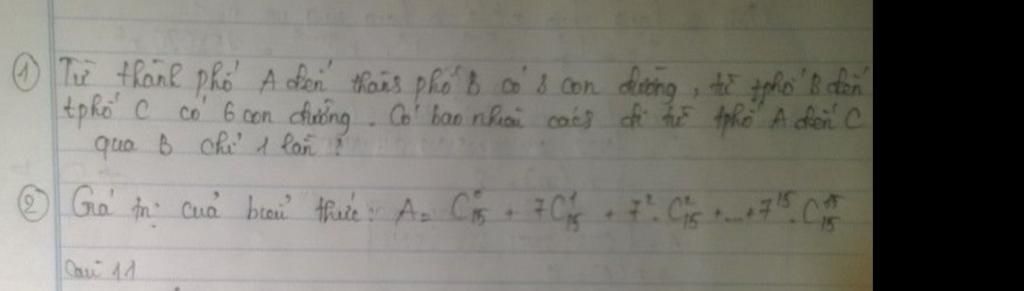 ① Từ thành phố A đến thành phố B có 8 con đường, từ tphố B đến
tphố C có 6 con đường. Có bao nhiêu cách đi từ tphố A đến C
qua B chỉ 1 lần ?
② Giá trị của biểu thức: A = C⁰₁₅ + 7C¹₁₅ + 7². C²₁₅ + ... + 7¹⁵. C¹⁵₁₅
Câu 11